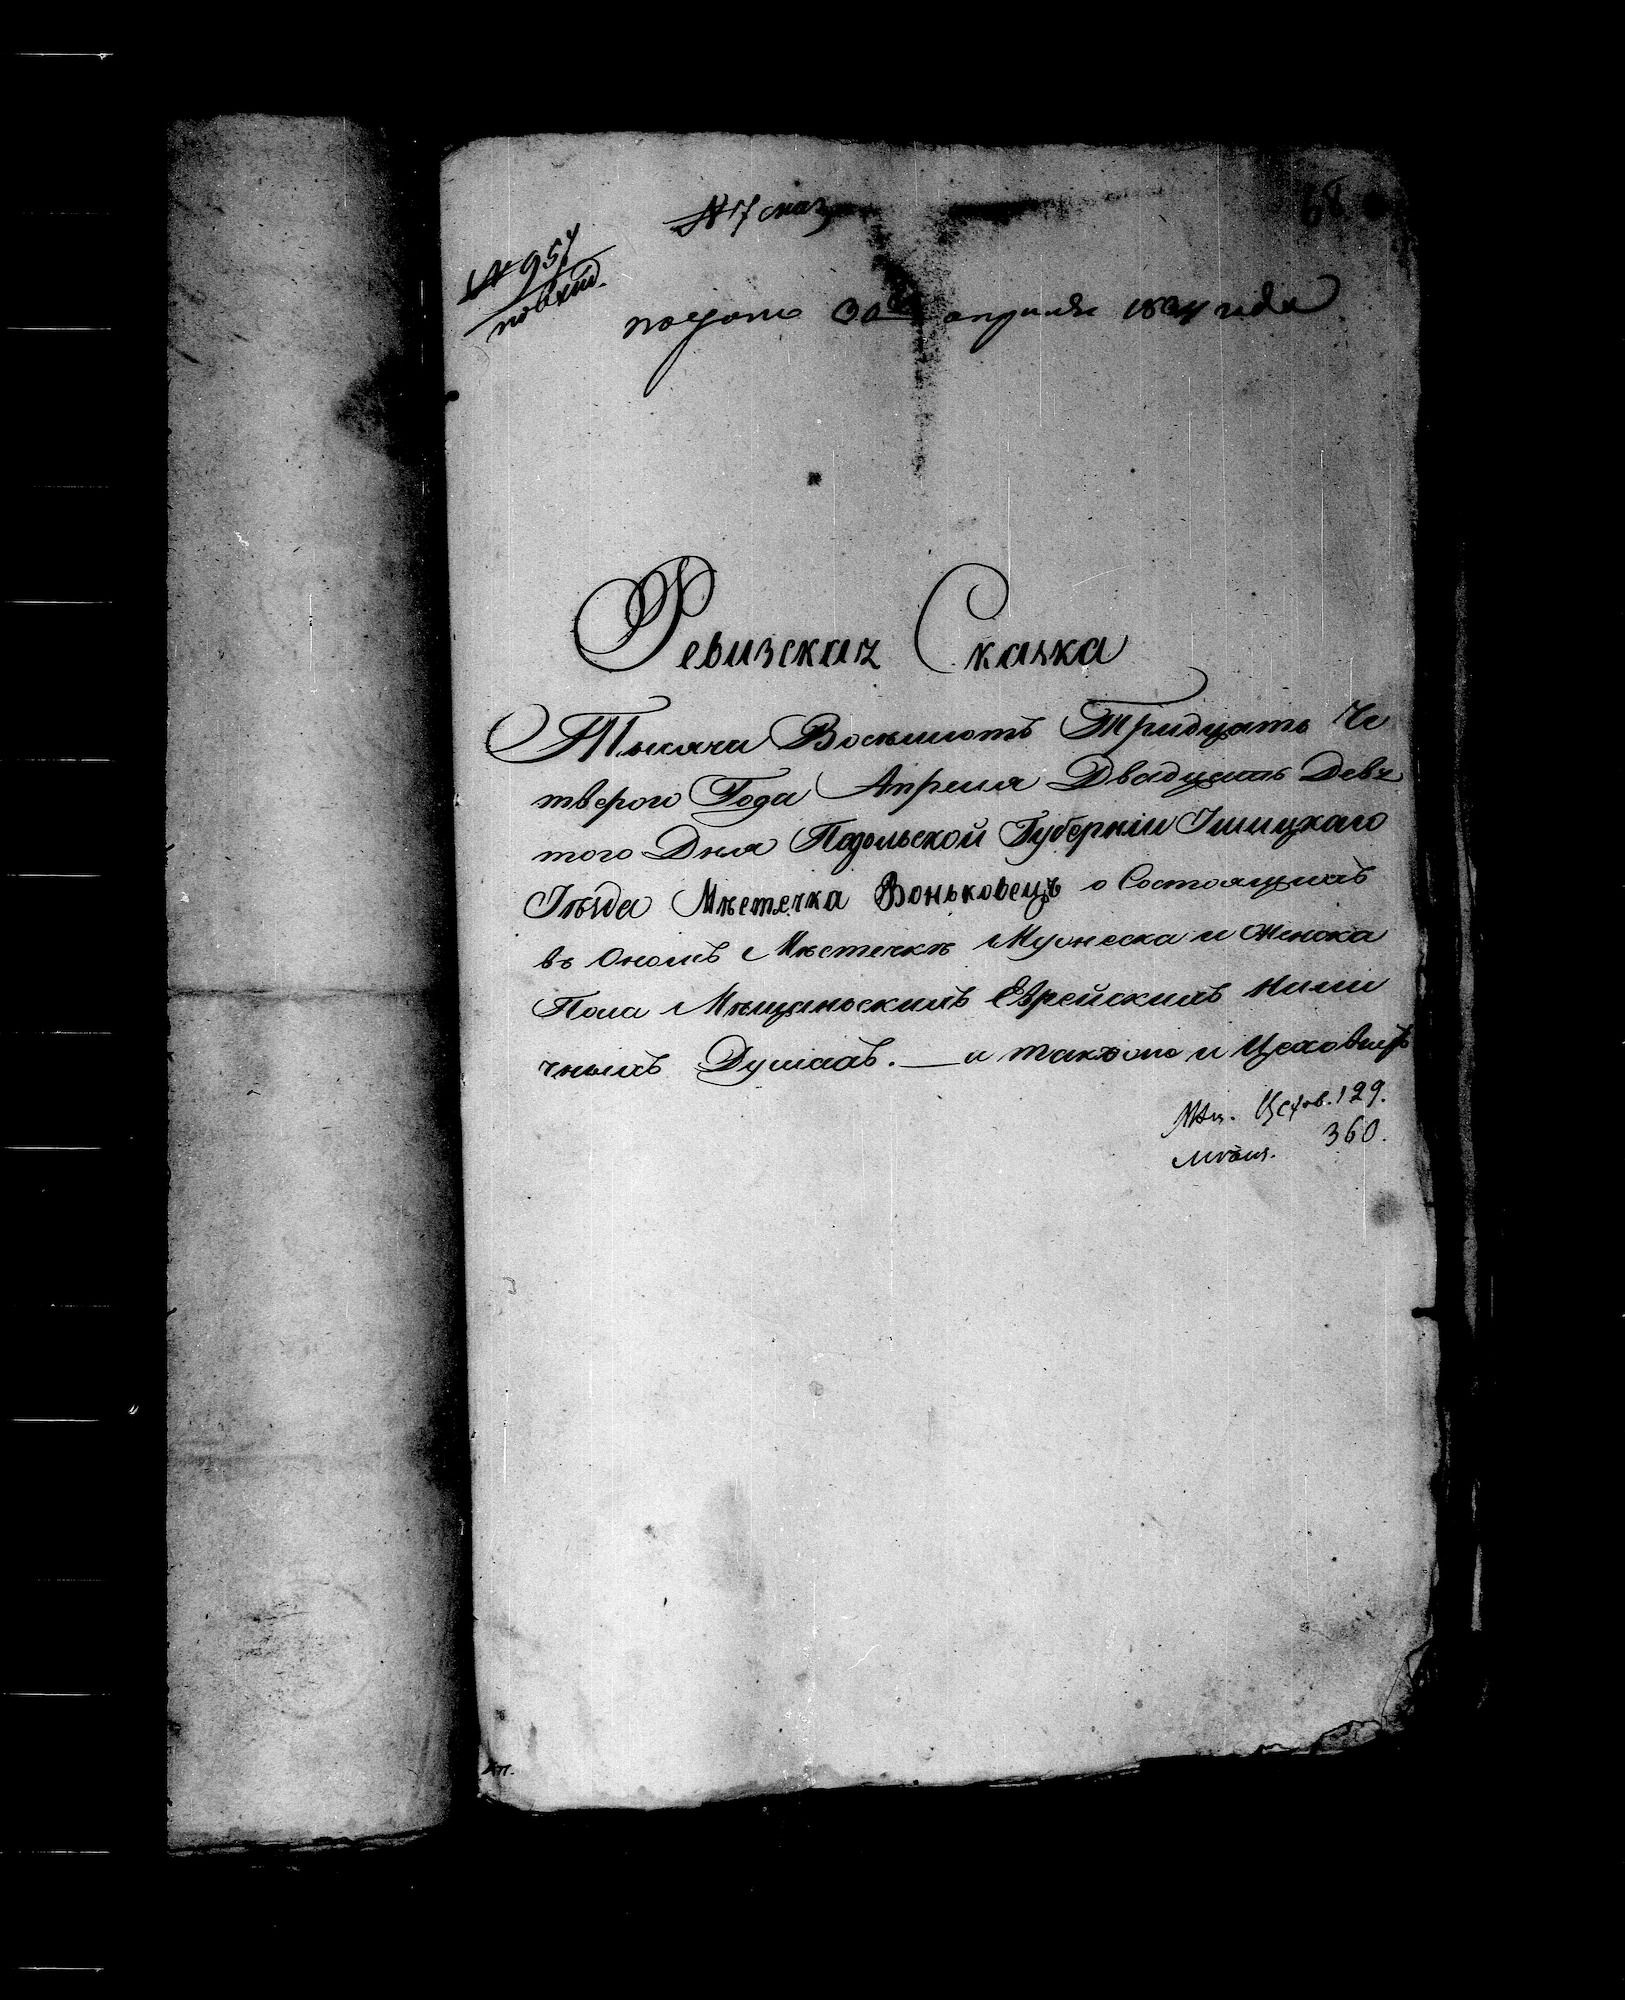 68
№ 7 сказ
№ 957
по вход.
подано 30го апреля 1834 года
Ревизская Сказка
Тысяча Восемсотъ Тридцать Че
тверого Года Апреля Двадцать Девя
того Дня Подольской Губерніи Ушицкаго
Уѣзда Мѣстечка Воньковецъ о Состоящихъ
въ Ономъ Мѣстечкѣ Мужеска и Женска
Пола Мѣщаньскихъ Еврейскихъ Нали
чныхъ Душахъ. — и также и Цеховыхъ
Мѣщ. Цехов. 129.
мѣщ. 360.